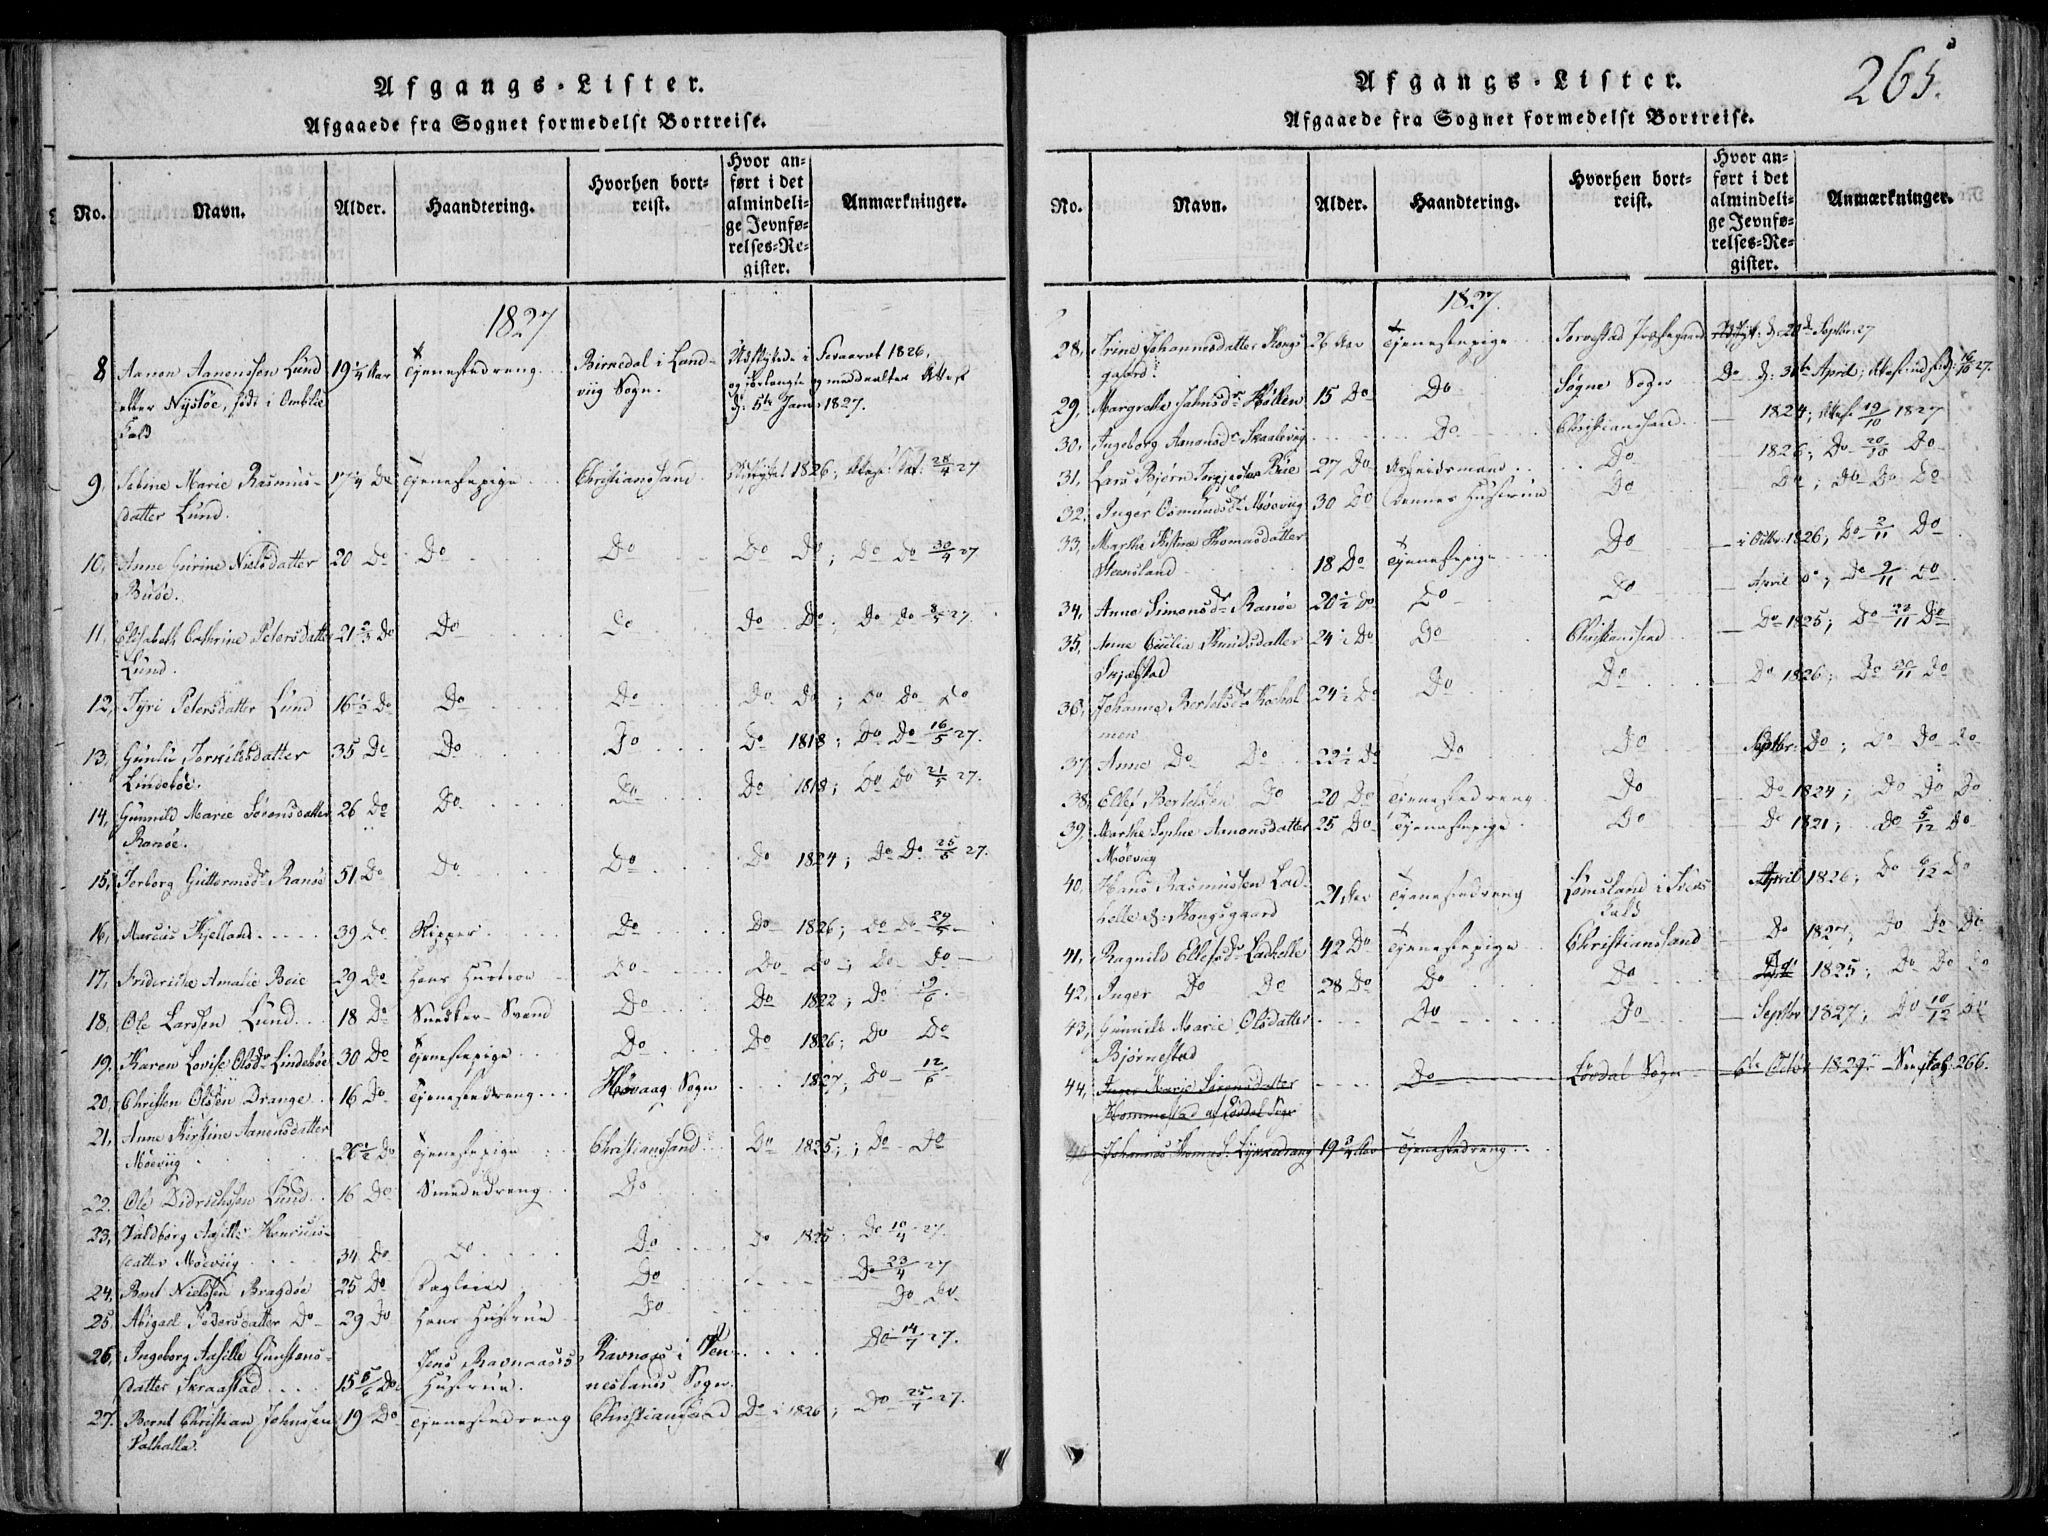 Afgangs-Lister.
Afgaaede fra Sognet formedelst Bortreise.
No. Navn. Alder. Haandtering. Hvorhen bortreist. Hvor anført i det almindelige Jevnførelses-Register. Anmærkninger.
1827
8 Aanon Aanonssøn Lund 19 1/4 Aar Tjenestedreng Birkedal i Landviig Sogn. Udflyttede i Foraaret 1826,
eller Nystøe, født i Omblie og forlangte og meddeeltes Attest
Fald d: 5te Janr 1827.
9, Sabine Marie Rasmusdatter Lund. 17 1/4 Do Tjenestepige Christianssand 1826; 28/4 27
10, Anne Guirine Nielsdatter Buøe. 20 Do Do Do Do Do; Do Do 30/4 27
11, Elisabeth Cathrine Petersdatter Lund. 21 Do Do Do Do Do; Do Do 8/5 27.
12, Tyri Petersdatter Lund 16 1/2 Do Do Do Do Do; Do Do Do
13, Gunlu Torkildsdatter Lindebøe. 35 Do Do Do Do 1818; Do Do 16/5 27.
14, Gunnild Marie Sørensdatter Ranøe. 26 Do Do Do Do 1818; Do Do 21/5 27.
15, Torborg Guttormsdr Ranøe 51 Do Do Do Do 1824; Do Do 25/5 27.
16, Marcus Kjelland 39 Do Skipper Do Do 1826; Do Do 29/5
17, Friderikke Amalie Beie 29 Do Hans Hustroe Do Do Do; Do Do
18, Ole Larssen Lund 18 Do Snedker-Svend Do Do 1822; Do 9/6.
19, Karen Lovise Olsdr Lindebøe 30 Do Tjenestepige Do Do 1826; Do Do
20, Christen Olsen Drange 16 Do Tjenestedreng Høvaag Sogn 1827; Do 12/6
21, Anne Kirstine Aanensdatter Møeviig 26 1/2 Do Tjenestepige Christianssand Do 1825; Do Do
22. Ole Didrichsen Lund 16 Do Smededreng Do
23, Valdborg Aasille Henriksdatter Møeviig 34 Do Do Do Do 1825. Do 10/4 27.
24, Bent Nielssen Bragdøe 25 Do Dagleier Do Do 23/4 27
25. Abigael Pedersdatter Do 29 Do Hans Hustrue Do Do Do
26, Ingeborg Aasille Gunstensdatter Skraastad 15 5/6 Do Jens Ravnaases Hustrue. Ravnaas i Venneslands Sogn. Do 14/7 27.
27. Bernt Christian Johnssen Valhalla. 19 Do Tjenestedreng Christianssand Do i 1826; Do 25/7 27.
265.
Afgangs-Lister.
Afgaaede fra Sognet formedelst Bortreise.
No. Navn. Alder. Haandtering. Hvorhen bortreist. Hvor anført i det almindelige Jevnførelses-Register. Anmærkninger.
1827.
28, Trine Johannesdatter Kongsgaard. 26 Aar Tjenestepige d: 20de Septbr: 27
29, Margrethe Jahnsdr 15 Do Do Søgne Sogn Do d: April; 16/10 27.
30, Ingeborg Aanonsdr Skaaleviig Do Christianssand 1824; 19/10 1827
31, Lars Bjørn 27 Do Arbeidsmand Do 1826; Do 20/10 Do
32. Inger Osmundsdr Møeviig 30 Do Dennes Hustrue Do Do; Do Do Do
33, Marthe Kistine Thomasdatter Steensland 18 Do Tjenestepige Do i Octbr: 1826; Do 2/11 Do
34, Anne Simonsdr Ranøe 20 1/2 Do Do Do April Do; Do 9/11 Do
35, Anne Cicilia Knudsdatter 24 1/2 Do Do Christianssand Do 1825; Do 22/11 Do
36, Johanne Bertelsdr Kocholmen 24 1/2 Do Do Do Do 1826; Do 30/11 Do
37. Anne Do Do 22 1/2 Do Do Do Septbr: Do; Do Do Do
38, Ellef Bertelsen Do 20 Do Tjenestedreng Do Do 1824; Do Do Do
39. Marthe Sophie Aanonsdatter Møeviig 25 Do Tjenestepige Do Do 1821; Do 5/12 Do
40. Hans Rasmussen Lachelle d: Kongsgaard 21 Aar Tjenestedreng Lømsland i Fald April 1826; Do 6/12 Do
41, Ragnild Ellefsdr Lachelle 42 Do Tjenestepige Christianssand Do 1827; Do Do Do
42, Inger Do Do 28 Do Do Do 1825; Do Do Do
43, Gunnild Marie Olsdatter Bjørnestad Do Do Septbr 1827; Do 10/12 Do
44, Inger Marie Sørensdatter Hommestad af Løvdal Sogn Do Løvdal Sogn 6te Octbr 1827 266.
45 Johannes 19 Aar Tjenestedreng